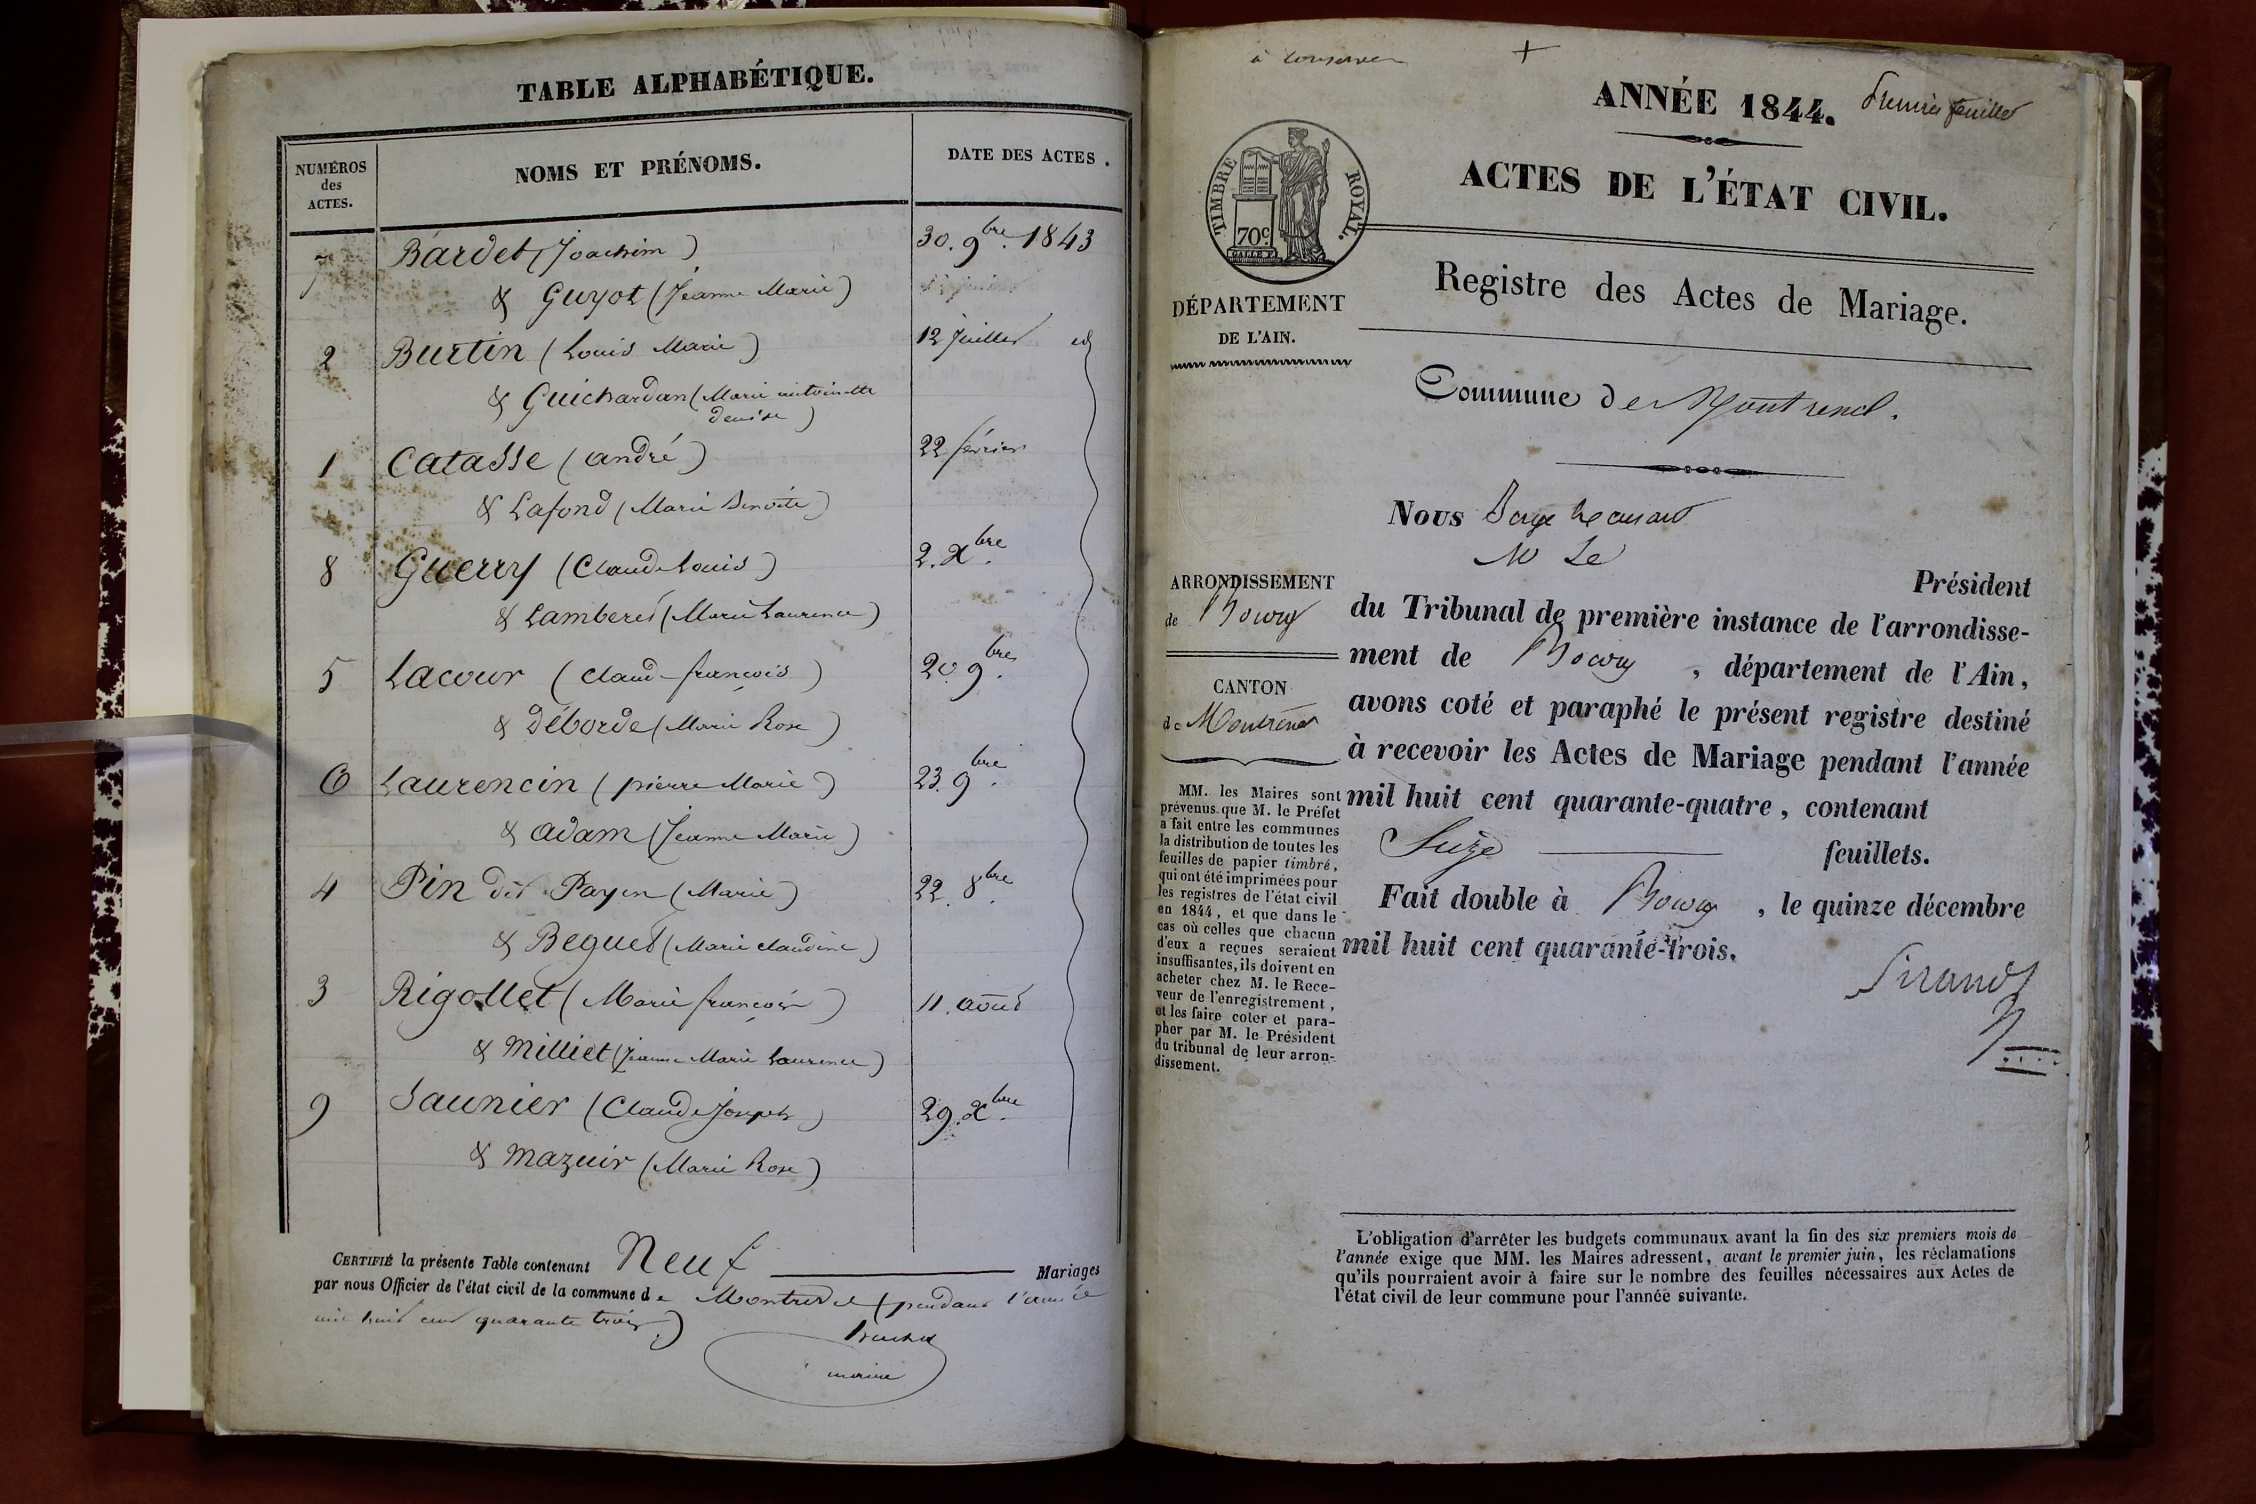 TABLE ALPHABÉTIQUE.
NUMÉROS
des
ACTES.
NOMS ET PRÉNOMS.
DATE DES ACTES.
7 Bardet (Joachim) 30. 9bre. 1843
& Guyot (Jeanne Marie)
2 Burtin (Louis Marie) 12 Juillet id
& Guichardan (Marie antoinette
denise)
1 Catasse (andré) 22 février
& Lafond (Marie Benoite)
8 Guerry (Claude Louis) 2. Xbre.
& Lamberet (Marie Laurence)
5 Lacour (Claude françois) 20. 9bre.
& Déborde (Marie Rose)
6 Laurencin (pierre Marie) 23. 9bre.
& adam (Jeanne Marie)
4 Pin dit Payen (Marie) 22. 8bre.
& Beguet (Marie claudine)
3 Rigollet (Marie françois) 11. août
& Milliet (Jeanne Marie Laurence)
9 Saunier (Claude Joseph) 29. Xbre.
& Mazuir (Marie Rose)
CERTIFIÉ la présente Table contenant Neuf Mariages
par nous Officier de l'état civil de la commune de Montrevel (pendant l'année
mil huit cent quarante trois)
maire
à conserver
+
ANNÉE 1844.
Premier feuillet
ACTES DE L'ÉTAT CIVIL.
TIMBRE ROYAL.
70c
Registre des Actes de Mariage.
DÉPARTEMENT
DE L'AIN.
Commune de Montrevel.
Nous
M Le
Président
du Tribunal de première instance de l'arrondisse-
ment de Bourg, département de l'Ain,
avons coté et paraphé le présent registre destiné
à recevoir les Actes de Mariage pendant l'année
mil huit cent quarante-quatre, contenant
Seize feuillets.
Fait double à Bourg, le quinze décembre
mil huit cent quarante-trois.
ARRONDISSEMENT
de Bourg
CANTON
de Montrevel
MM. les Maires sont
prévenus que M. le Préfet
a fait entre les communes
la distribution de toutes les
feuilles de papier timbré,
qui ont été imprimées pour
les registres de l'état civil
en 1844, et que dans le
cas où celles que chacun
d'eux a reçues seraient
insuffisantes, ils doivent en
acheter chez M. le Rece-
veur de l'enregistrement,
et les faire coter et para-
pher par M. le Président
du tribunal de leur arron-
dissement.
L'obligation d'arrêter les budgets communaux avant la fin des six premiers mois de
l'année exige que MM. les Maires adressent, avant le premier juin, les réclamations
qu'ils pourraient avoir à faire sur le nombre des feuilles nécessaires aux Actes de
l'état civil de leur commune pour l'année suivante.